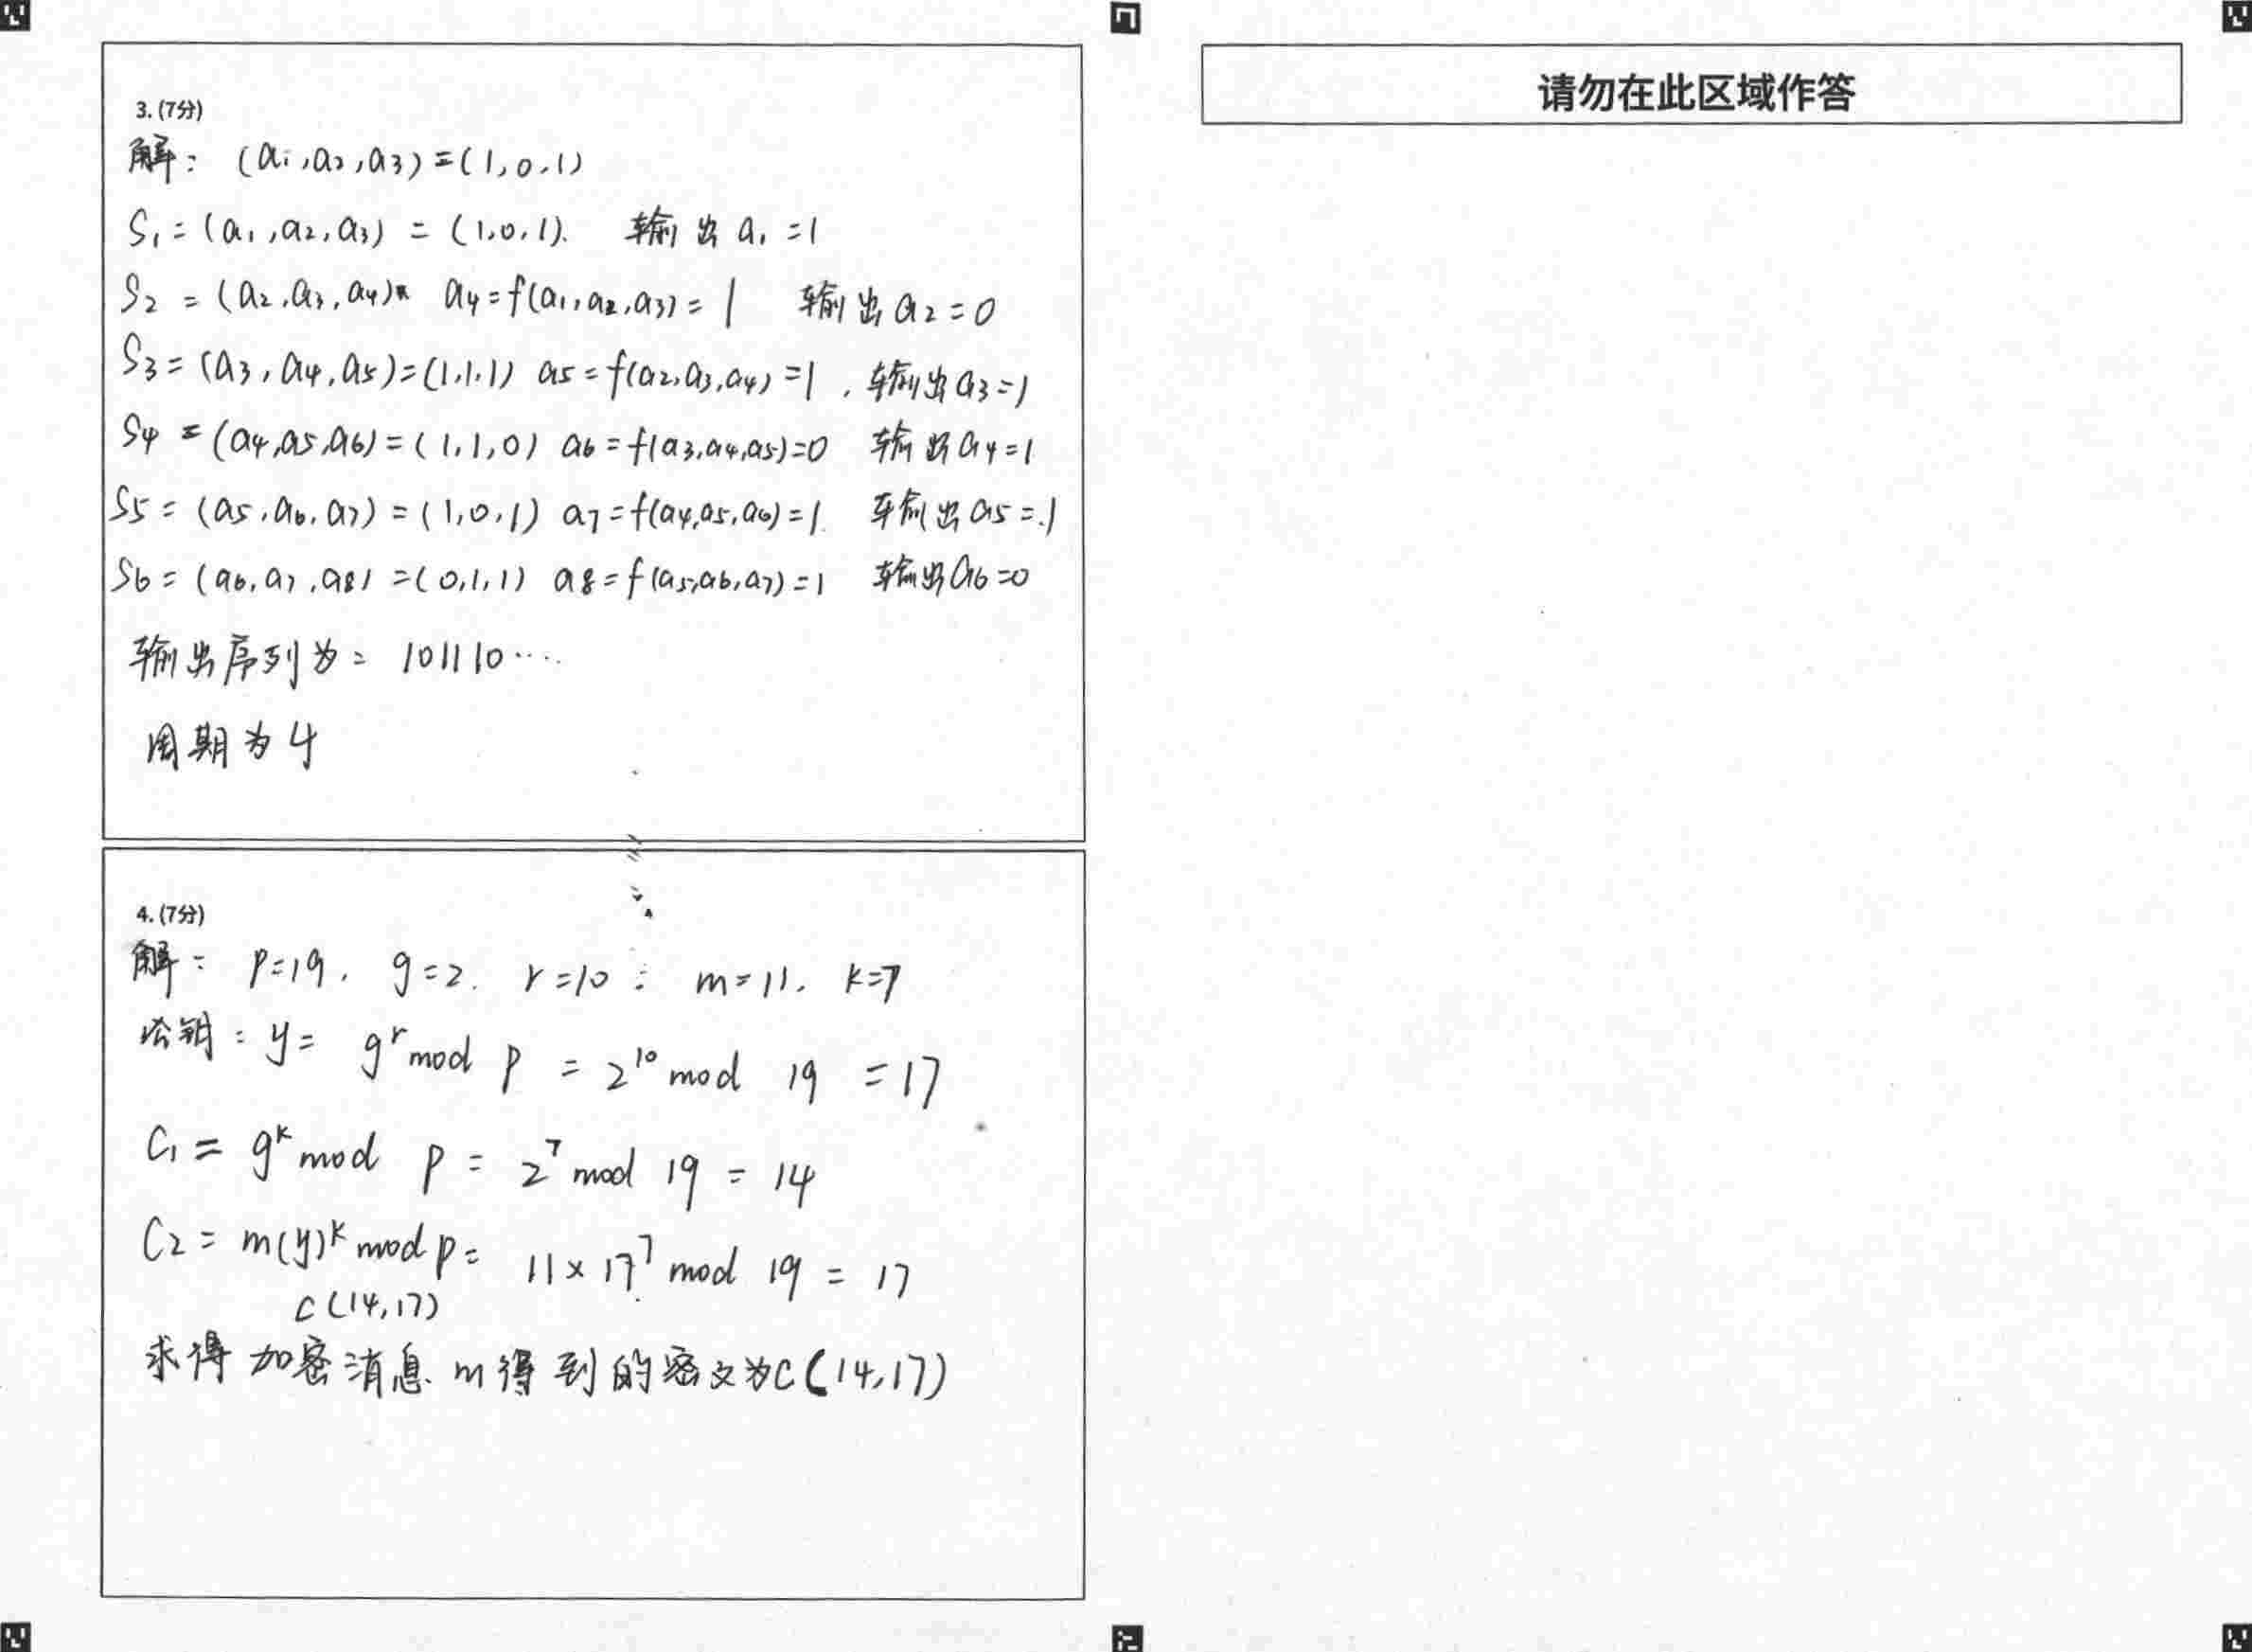 3. (7分)
解: (a₁,a₂,a₃)=(1,0,1)
S₁=(a₁,a₂,a₃) = (1,0,1). 输出 a₁=1
S₂ =(a₂,a₃,a₄) a₄=f(a₁,a₂,a₃)=1 输出 a₂=0
S₃=(a₃,a₄,a₅)=(1,1,1) a₅=f(a₂,a₃,a₄)=1, 输出 a₃=1
S₄ =(a₄,a₅,a₆)=(1,1,0) a₆=f(a₃,a₄,a₅)=0 输出 a₄=1
S₅=(a₅,a₆,a₇)=(1,0,1) a₇=f(a₄,a₅,a₆)=1. 输出 a₅=1
S₆=(a₆,a₇,a₈)=(0,1,1) a₈=f(a₅,a₆,a₇)=1 输出 a₆=0
输出序列为: 101110····
周期为4
4. (7分)
解: p=19, g=2. r=10 : m=11, k=7
公钥: y= gʳ mod p = 2¹⁰ mod 19 =17
C₁ = gᵏ mod p = 2⁷ mod 19 = 14
C₂= m(y)ᵏ mod p= 11×17⁷ mod 19 = 17
C(14,17)
求得加密消息 m得到的密文为C(14,17)
请勿在此区域作答